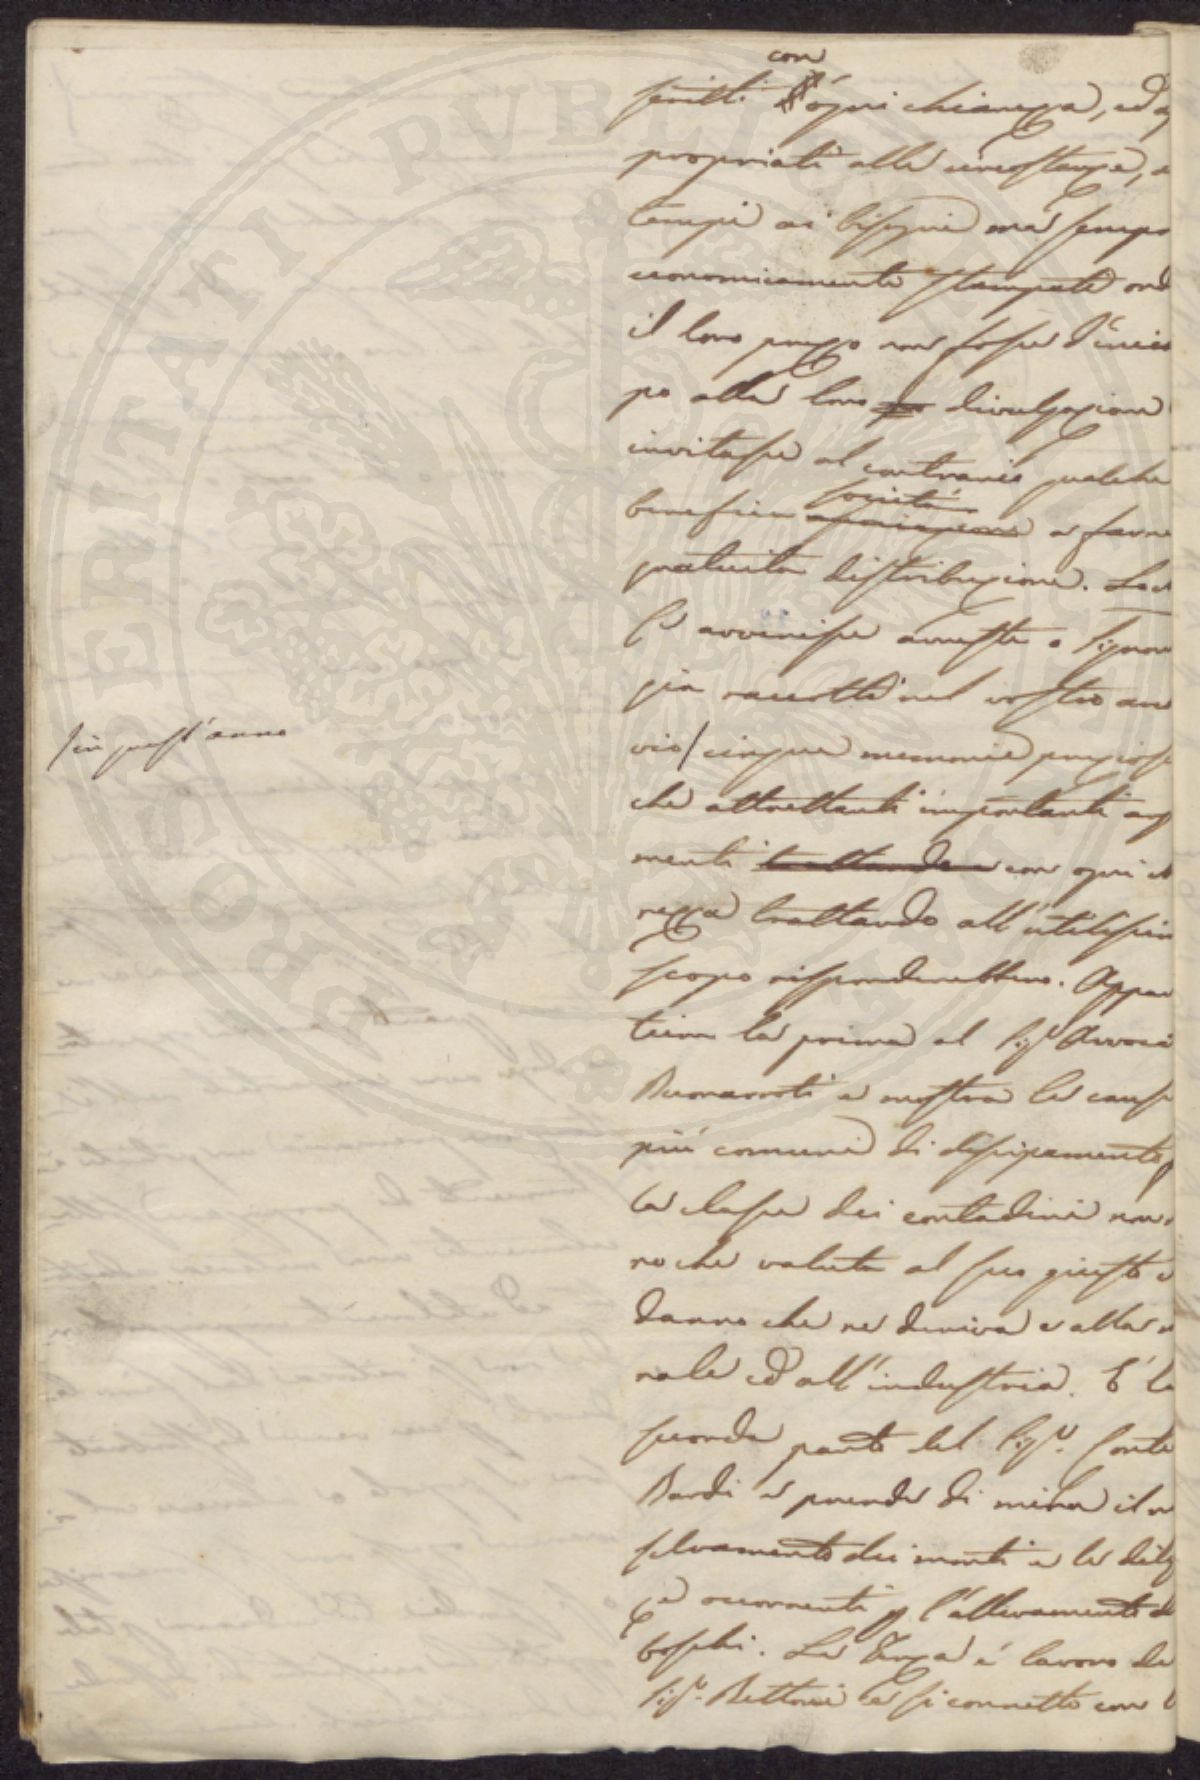 con
scritti ogni chiarezza, ed ap
propriati alle circostanze, a
tempi ai bisogni ma sempre
economicamente stampati ond
il loro prezzo non fosse d'inciam
po alla loro divulgazione
invitasse al contrario qualche
società
benefica associazione a farne
gratuita distribuzione. Lo d
se avvenisse avreste o Signori
già raccolti nel vostro arc
/ in quest'anno
vio / cinque memorie preziose
che altrettanti importanti arg
menti trattando con ogni ch
rezza trattando all'utilissim
scopo risponderebbero. Appar
tiene la prima al Sig.r Avvoca
Buonarroti e mostra le cause
più comuni di dissipamento
la classe dei contadini non
no che valuta al suo giusto il
danno che ne deriva e alla mo
rale ed all'industria. E' la
seconda parto del Sig.r Conte
Bardi e prende di mira il rin
selvamento dei monti e le dilig
e occorrenti p l'allevamento de
boschi. La Terza è lavoro de
Sig.r Bettoni e si connette con l
PUBLICAE
PROSPERITATI
AUGENDAE